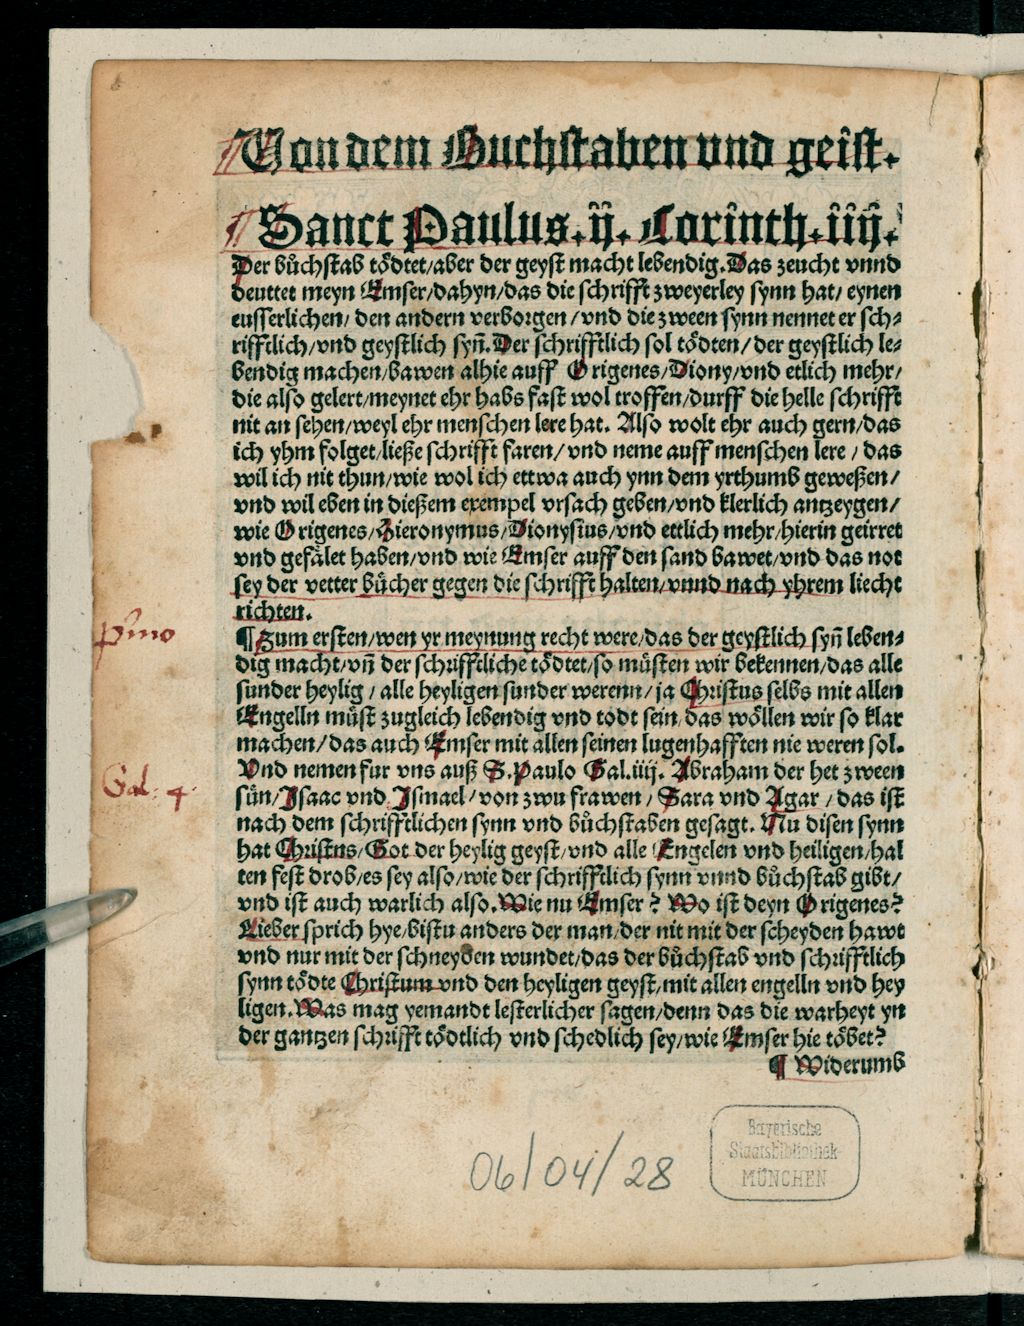 Von dem Buchstaben vnd geist.
Sanct Paulus. ij. Corinth. iij.
Der bůchstab tödtet/aber der geyst macht lebendig. Das zeucht vnnd
deuttet meyn Emser/dahyn/das die schrifft zweyerley synn hat/ eynen
eusserlichen/ den andern verborgen/vnd die zween synn nennet er sch⸗
rifftlich/vnd geystlich syn̄. Der schrifftlich sol tödten/ der geystlich le⸗
bendig machen/bawen alhie auff Origenes/Diony/vnd etlich mehr/
die also gelert/meynet ehr habs fast wol troffen/durff die helle schrifft
nit an sehen/weyl ehr menschen lere hat. Also wolt ehr auch gern/das
ich yhm folget/ließe schrifft faren/ vnd neme auff menschen lere / das
wil ich nit thun/wie wol ich ettwa auch ynn dem yrthumb geweßen/
vnd wil eben in dießem exempel vrsach geben/vnd klerlich antzeygen/
wie Origenes/Hieronymus/Dionysius/vnd ettlich mehr/hierin geirret
vnd gefälet haben/vnd wie Emser auff den sand bawet/vnd das not
sey der vetter bůcher gegen die schrifft halten/vnnd nach yhrem liecht
richten.
pͥmo
¶ Zum ersten/wen yr meynung recht were/das der geystlich syn̄ leben⸗
dig macht/vn̄ der schrifftliche tödtet/so müsten wir bekennen/das alle
sunder heylig / alle heyligen sunder werenn/ ja Christus selbs mit allen
Engelln müst zugleich lebendig vnd todt sein/das wöllen wir so klar
machen/das auch Emser mit allen seinen lugenhafften nie weren sol.
Vnd nemen fur vns auß S. Paulo Gal. iiij. Abraham der het zween
Gal. 4.
sün/Isaac vnd Ismael/von zwu frawen / Sara vnd Agar / das ist
nach dem schrifftlichen synn vnd bůchstaben gesagt. Nu disen synn
hat Christns/Got der heylig geyst/vnd alle Engelen vnd heiligen/hal
ten fest drob/es sey also/wie der schrifftlich synn vnnd bůchstab gibt/
vnd ist auch warlich also. Wie nu Emser? Wo ist deyn Origenes?
Lieber sprich hye/bistu anders der man/der nit mit der scheyden hawt
vnd nur mit der schneyden wundet/das der bůchstab vnd schrifftlich
synn tödte Christum vnd den heyligen geyst/mit allen engelln vnd hey
ligen. Was mag yemandt lesterlicher sagen/denn das die warheyt yn
der gantzen schrifft tödtlich vnd schedlich sey/wie Emser hie töbet?
¶ Widerumb
06/04/28
Bayerische
Staatsbibliothek
MÜNCHEN